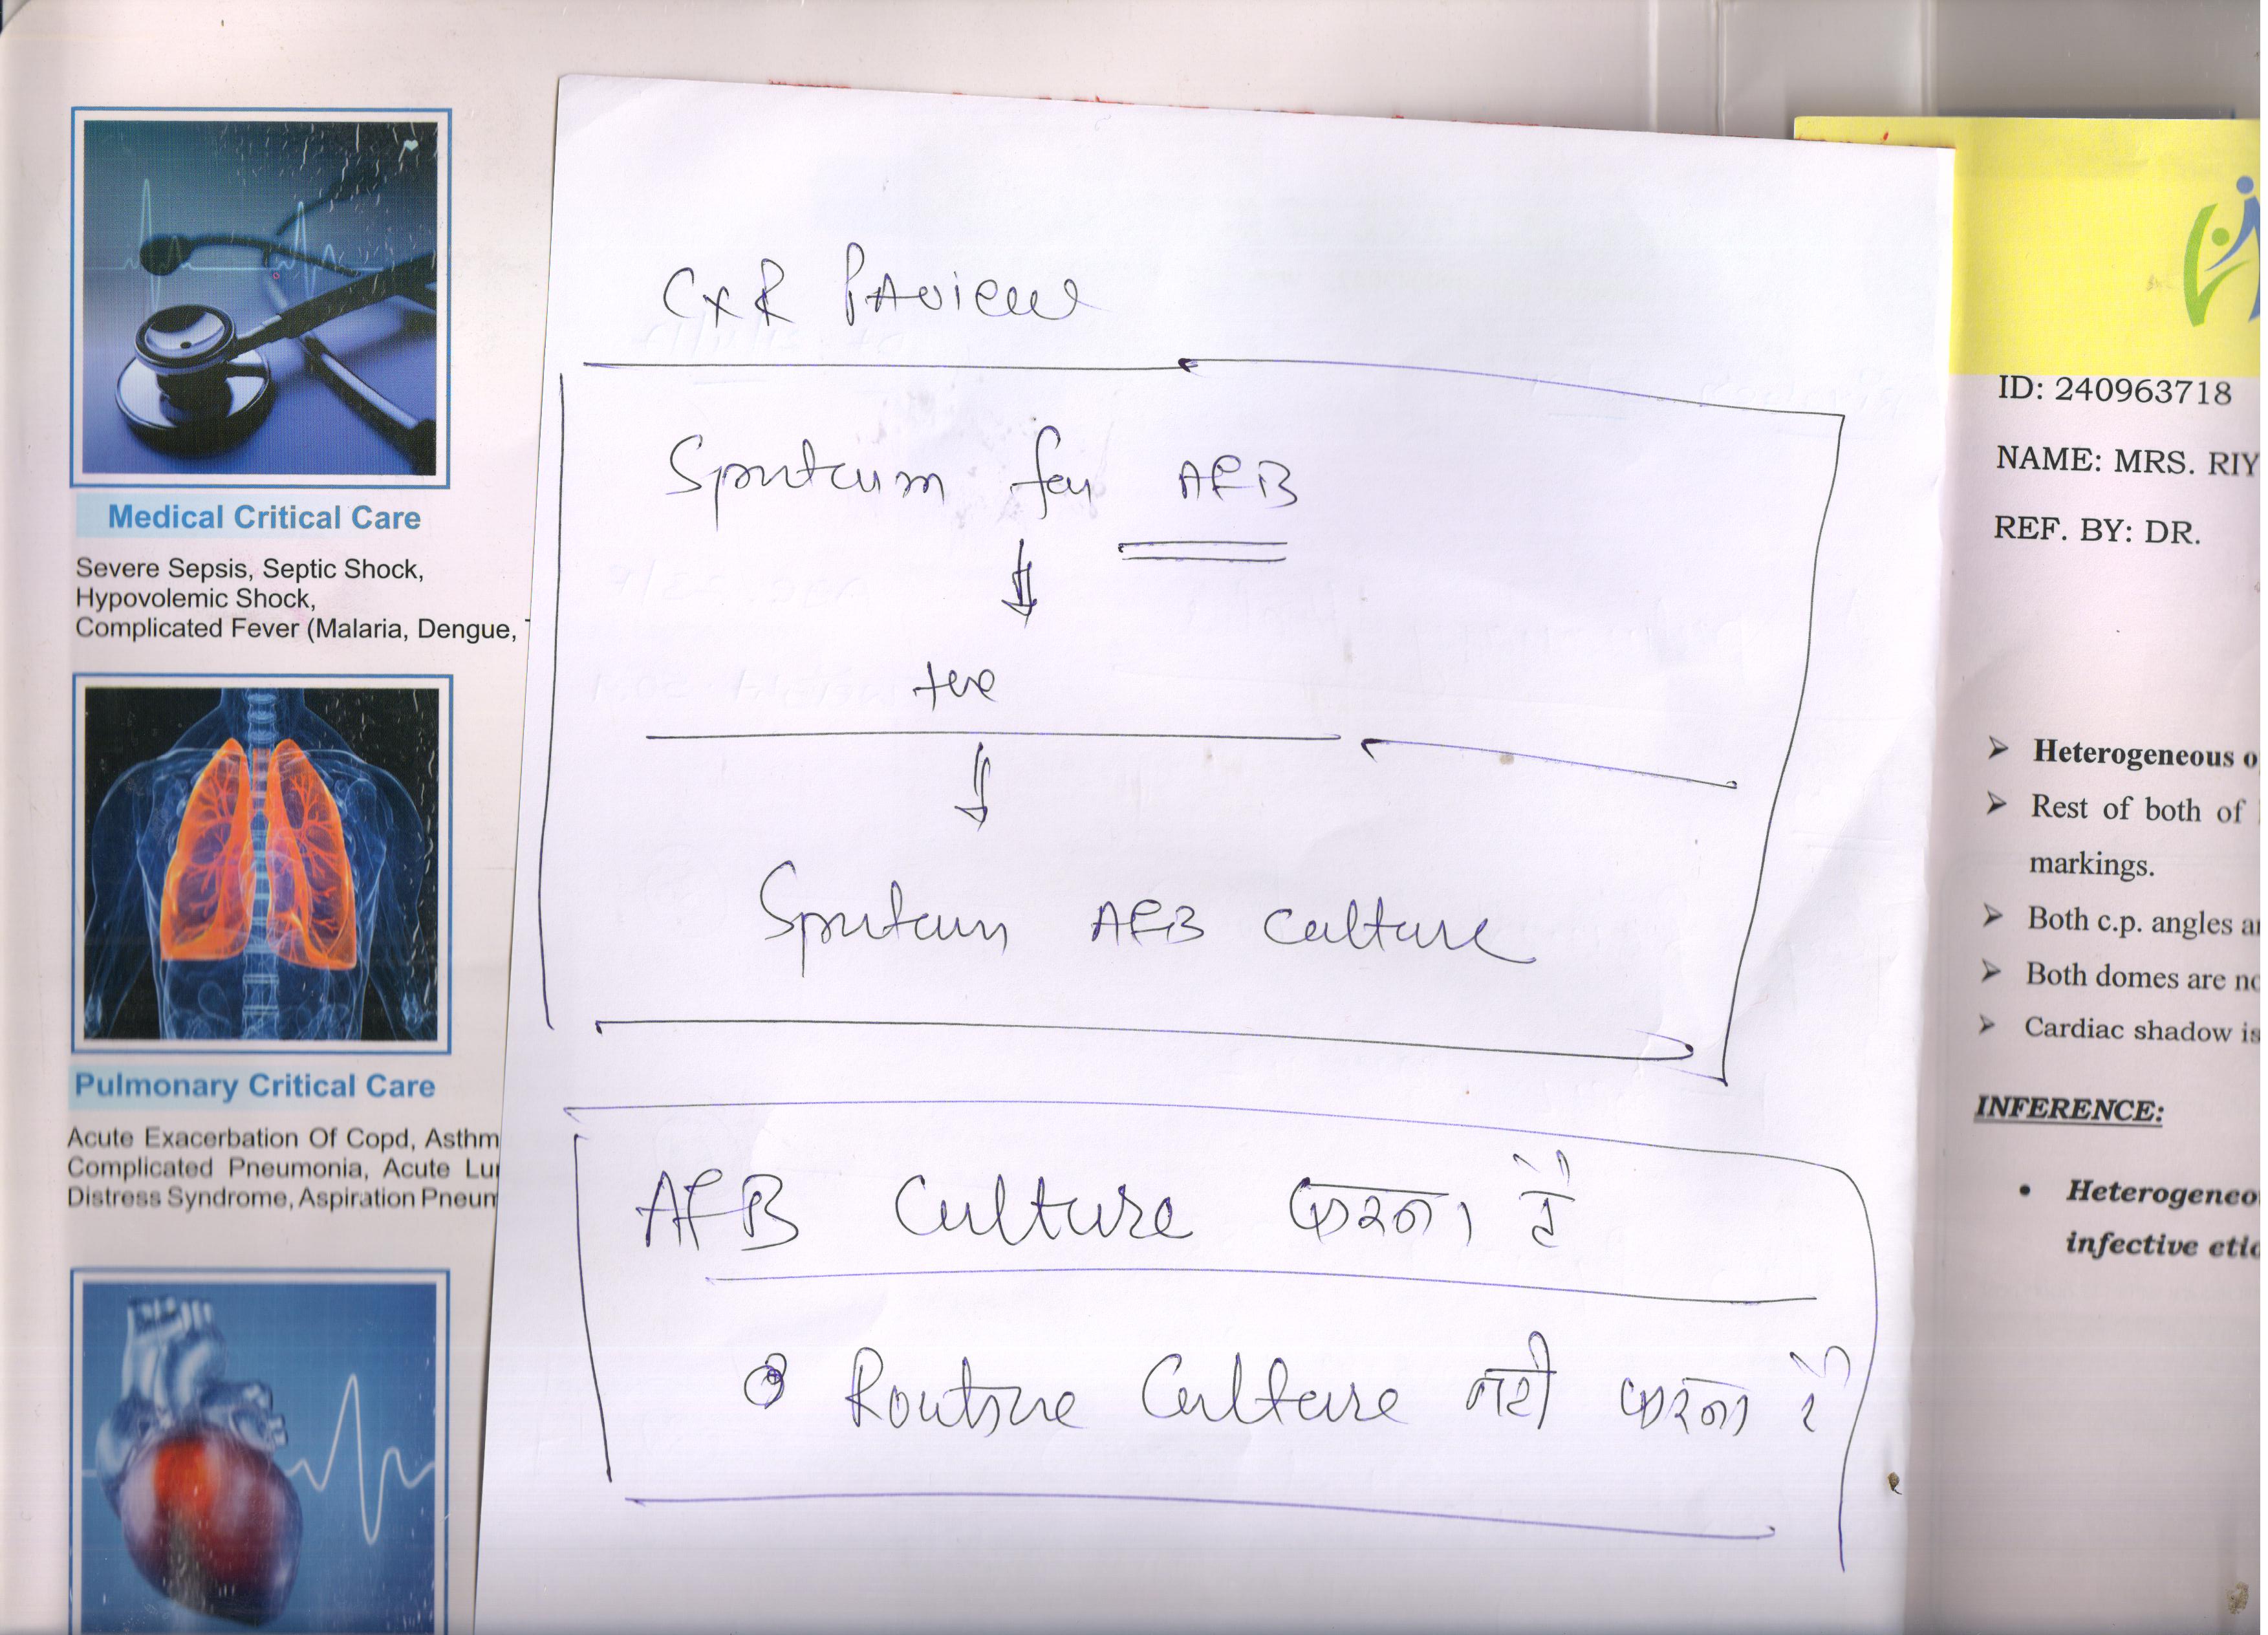 Medical Critical Care
Severe Sepsis, Septic Shock,
Hypovolemic Shock,
Complicated Fever (Malaria, Dengue,
Pulmonary Critical Care
Acute Exacerbation Of Copd, Asthm
Complicated Pneumonia, Acute Lu
Distress Syndrome, Aspiration Pneum
CXR PA view
Sputum for AFB
+ve
Sputum AFB Culture
AFB Culture करना है
Routine Culture नही करना है
ID: 240963718
NAME: MRS. RIY
REF. BY: DR.
Heterogeneous o
Rest of both of
markings.
Both c.p. angles a
Both domes are no
Cardiac shadow is
INFERENCE:
Heterogeneo
infective etio